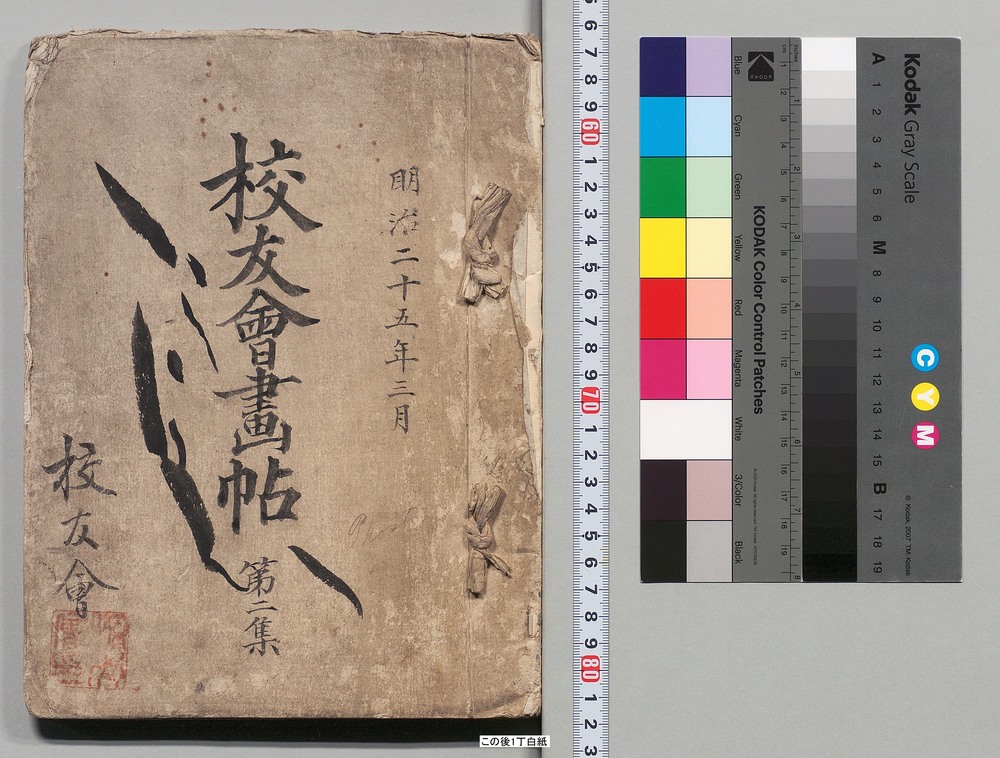 明治二十五年三月
校友會畫帖
第二集
校友會
この後1丁白紙
6 7 8 9 60 1 2 3 4 5 6 7 8 9 70 1 2 3 4 5 6 7 8 9 80 1 2 3
Blue
Cyan
Green
Yellow
Red
Magenta
White
3/Color
Black
KODAK
KODAK Color Control Patches
inches
cm
Kodak Gray Scale
A 1 2 3 4 5 6 M 8 9 10 11 12 13 14 15 B 17 18 19
C Y M
© Kodak, 2007 TM: Kodak